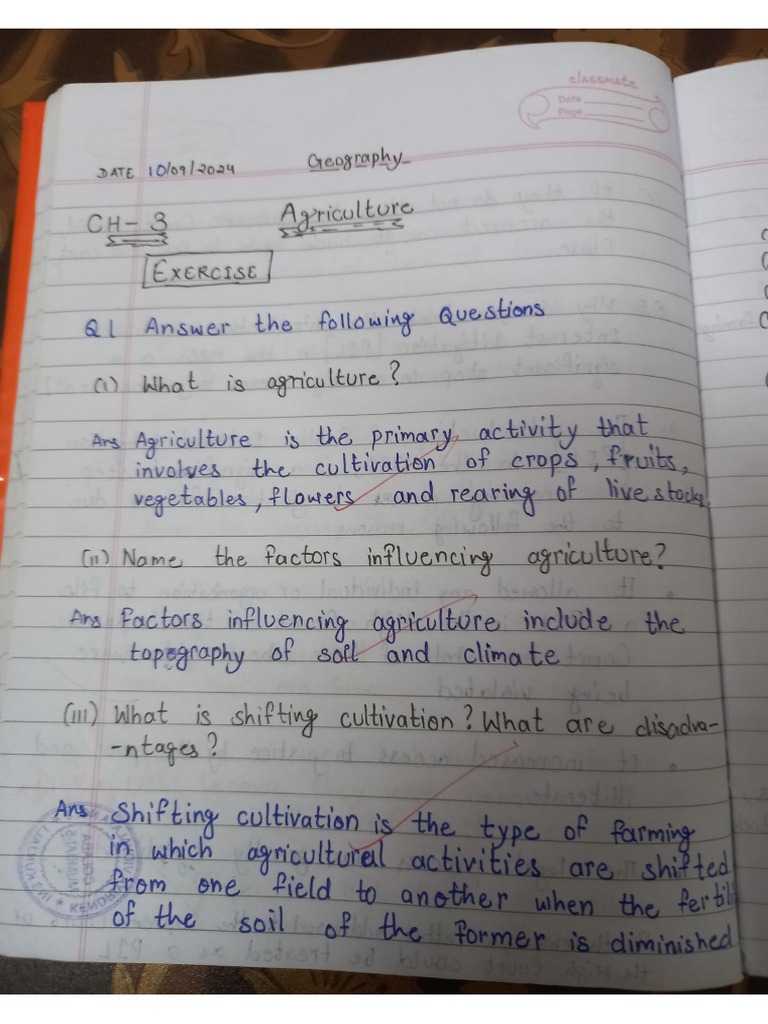 classmate
Date
Page
DATE 10/09/2024 Geography
CH-3 Agriculture
EXERCISE
Q1 Answer the following Questions
(i) What is agriculture?
Ans Agriculture is the primary activity that
involves the cultivation of crops, fruits,
vegetables, flowers, and rearing of livestocks
(ii) Name the factors influencing agriculture?
Ans Factors influencing agriculture include the
topography of soil and climate
(iii) What is shifting cultivation? What are disadva-
-ntages?
Ans Shifting cultivation is the type of farming
in which agricultural activities are shifted
from one field to another when the fertili
of the soil of the former is diminished